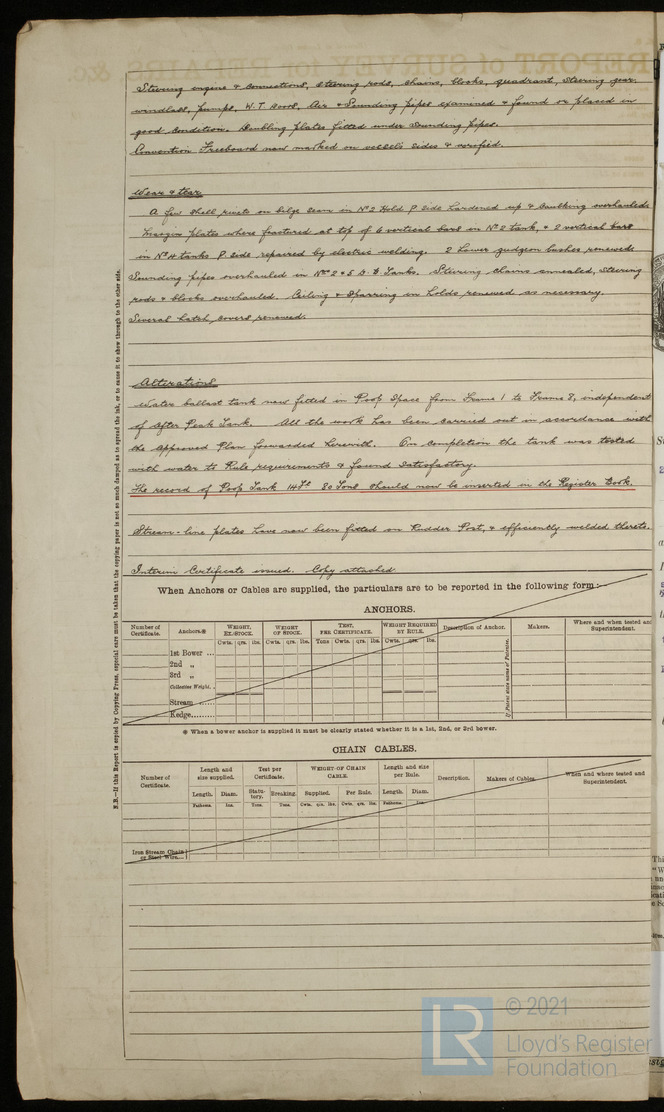 Steering engine & connections, steering rods, chains, blocks, quadrant, steering gear,
windlass, pumps, W.T. doors, Air & Sounding pipes examined & found or placed in
good condition. Doubling plates fitted under Sounding pipes.
Convention Freeboard now marked on vessel's sides & verified.
Wear & tear
A few shell rivets on bilge seam in No 2 Hold P side hardened up & caulking overhauled.
Margin plates where fractured at top of 6 vertical bars in No 2 tank, & 2 vertical bars
in No 4 tanks P. side repaired by electric welding. 2 Lower gudgeon bushes renewed.
Sounding pipes overhauled in Nos 2 & 5 D.B. Tanks. Steering chains annealed, Steering
rods & blocks overhauled. Ceiling & Sparring in holds renewed as necessary.
Several hatch covers renewed.
Alterations
Water ballast tank now fitted in Poop Space from Frame 1 to Frame 8, independent
of After Peak Tank. All the work has been carried out in accordance with
the approved Plan forwarded herewith. On completion the tank was tested
with water to Rule requirements & found satisfactory.
The record of Poop Tank 14 Ft 80 Tons should now be inserted in the Register Book.
Stream-line plates have now been fitted on Rudder Post, & efficiently welded thereto.
Interim Certificate issued. Copy attached
When Anchors or Cables are supplied, the particulars are to be reported in the following form:—
ANCHORS.
Number of Certificate. Anchors.* WEIGHT, EX-STOCK. WEIGHT OF STOCK. TEST, PER CERTIFICATE. WEIGHT REQUIRED BY RULE. Description of Anchor. Makers. Where and when tested and Superintendent.
Cwts. qrs. lbs. Cwts. qrs. lbs. Tons Cwts. qrs. lbs. Cwts. qrs. lbs.
1st Bower ...
2nd „
3rd „
Collective Weight.
Stream
Kedge
If Patent state name of Patentee.
* When a bower anchor is supplied it must be clearly stated whether it is a 1st, 2nd, or 3rd bower.
CHAIN CABLES.
Number of Certificate. Length and size supplied. Test per Certificate. WEIGHT OF CHAIN CABLE. Length and size per Rule. Description. Makers of Cables. When and where tested and Superintendent.
Length. Diam. Statutory. Breaking. Supplied. Per Rule. Length. Diam.
Fathoms. Ins. Tons. Tons. Cwts. qrs. lbs. Cwts. qrs. lbs. Fathoms. Ins.
Iron Stream Chain
or Steel Wire
N.B.—If this Report is copied by Copying Press, especial care must be taken that the copying paper is not so much damped as to spread the ink, or to cause it to show through to the other side.
LR
© 2021
Lloyd's Register
Foundation